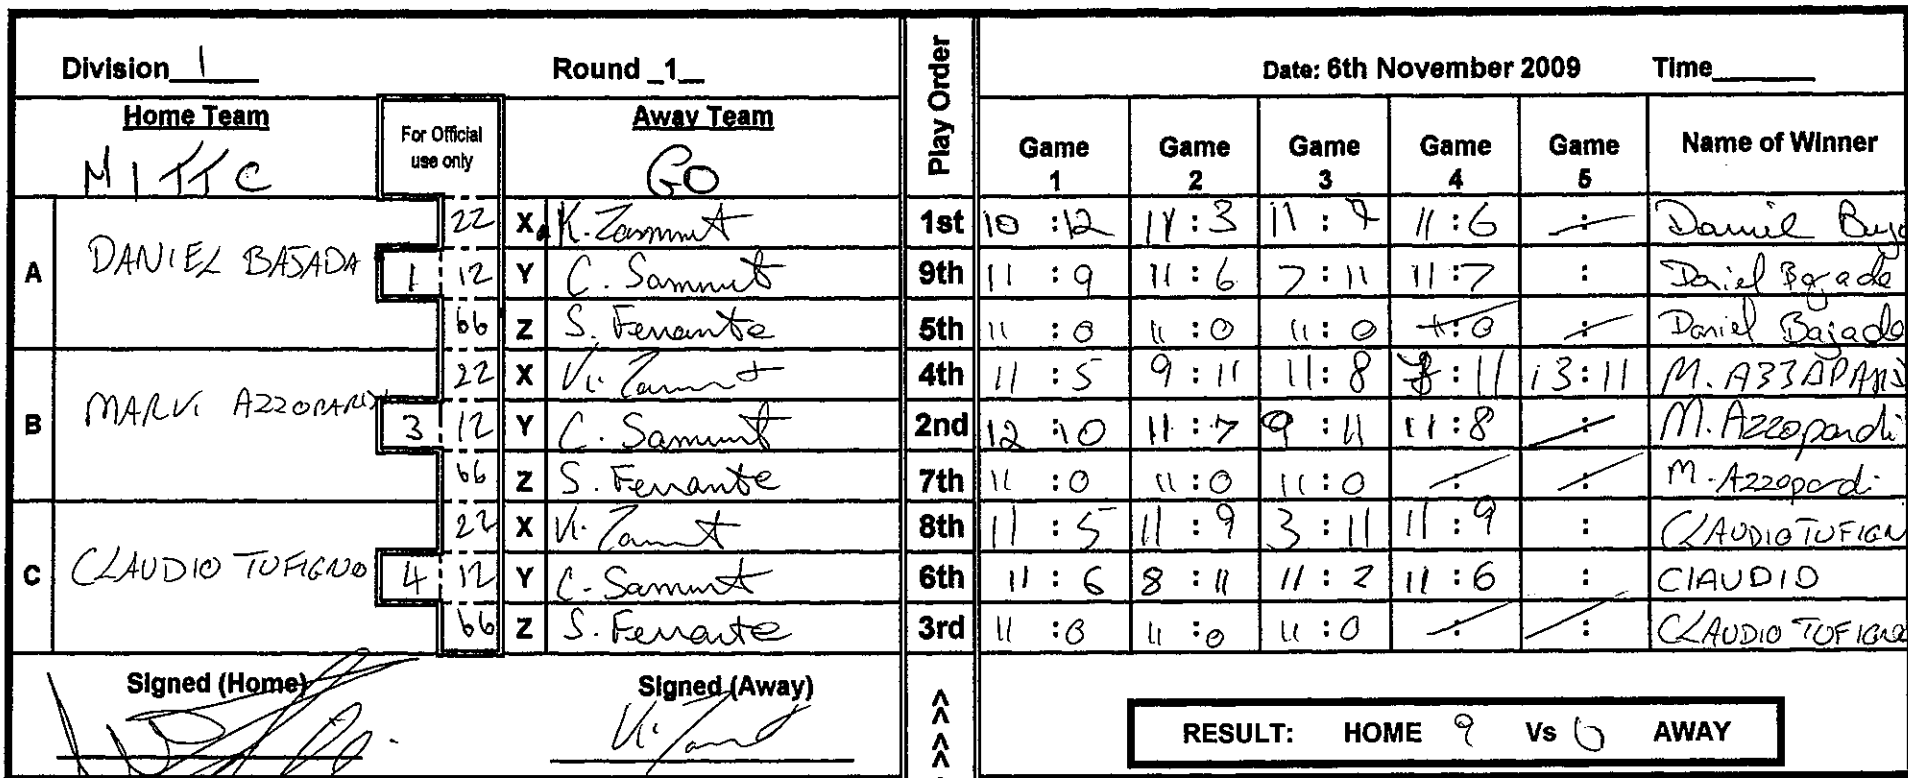 Division 1 Round _1_ Play Order Date: 6th November 2009 Time
Home Team For Official use only Away Team Game 1 Game 2 Game 3 Game 4 Game 5 Name of Winner
MITTC GO
A DANIEL BAJADA 22 X K. Zammit 1st 10 : 12 11 : 3 11 : 7 11 : 6 : Daniel
1 12 Y C. Sammut 9th 11 : 9 11 : 6 7 : 11 11 : 7 : Daniel Bajada
66 Z S. Ferrante 5th 11 : 0 11 : 0 11 : 0 : Daniel Bajada
B MARVI AZZOPARDI 22 X K. Zammit 4th 11 : 5 9 : 11 11 : 8 8 : 11 13 : 11 M. AZZOPARDI
3 12 Y C. Sammut 2nd 12 : 10 11 : 7 9 : 11 11 : 8 : M. Azzopardi
66 Z S. Ferrante 7th 11 : 0 11 : 0 11 : 0 : : M. Azzopardi
C CLAUDIO TUFIGNO 22 X K. Zammit 8th 11 : 5 11 : 9 3 : 11 11 : 9 : CLAUDIO TUFIGN
4 12 Y C. Sammut 6th 11 : 6 8 : 11 11 : 2 11 : 6 : CLAUDIO
66 Z S. Ferrante 3rd 11 : 0 11 : 0 11 : 0 : : CLAUDIO TUFIGNO
Signed (Home) Signed (Away) >>>>
RESULT: HOME 9 Vs 0 AWAY